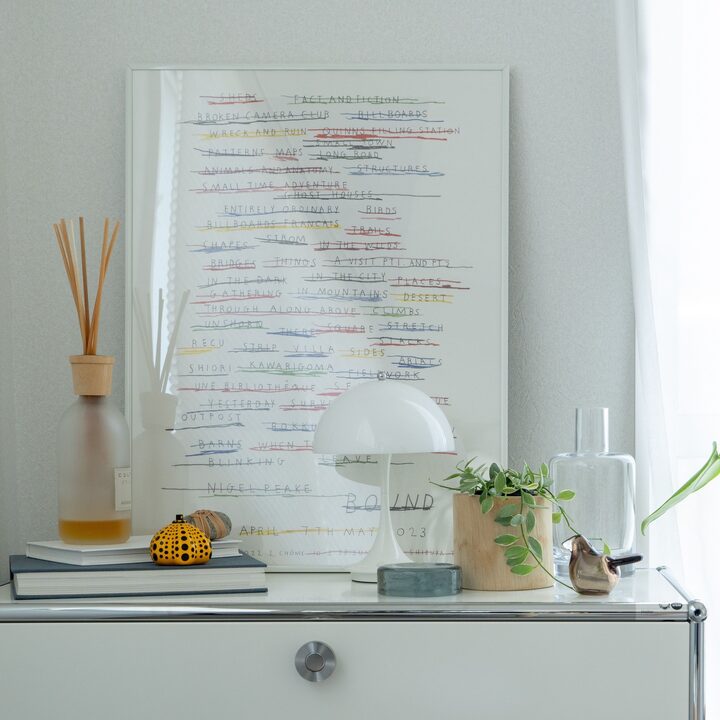 SHEDS FACT AND FICTION
BROKEN CAMERA CLUB BILLBOARDS
WRECK AND RUIN QUINNS FILLING STATION
SMALL TOWN
PATTERNS MAPS LONG ROAD
ANIMALS AND ANATOMY STRUCTURES
SMALL TIME ADVENTURE
GHOST HOUSES
ENTIRELY ORDINARY BIRDS
BILLBOARDS FRANCAIS
TRAILS
SHAPES STROM IN THE WILDS
BRIDGES THINGS A VISIT PT1 AND PT2
IN THE DARK IN THE CITY PLACES
GATHERING IN MOUNTAINS DESERT
THROUGH ALONG ABOVE CLIMBS
UNSHORN THERE SQUARE STRETCH
RECU STRIP VILLA SIDES STACKS
SHIORI KAWARIGOMA ABIATS
FIELDWORK
UNE BIBLIOTHÈQUE
YESTERDAY
OUTPOST
BARNS WHEN
BLINKING LEAVE
NIGEL PEAKE
BOUND
APRIL 7TH MAY 2023